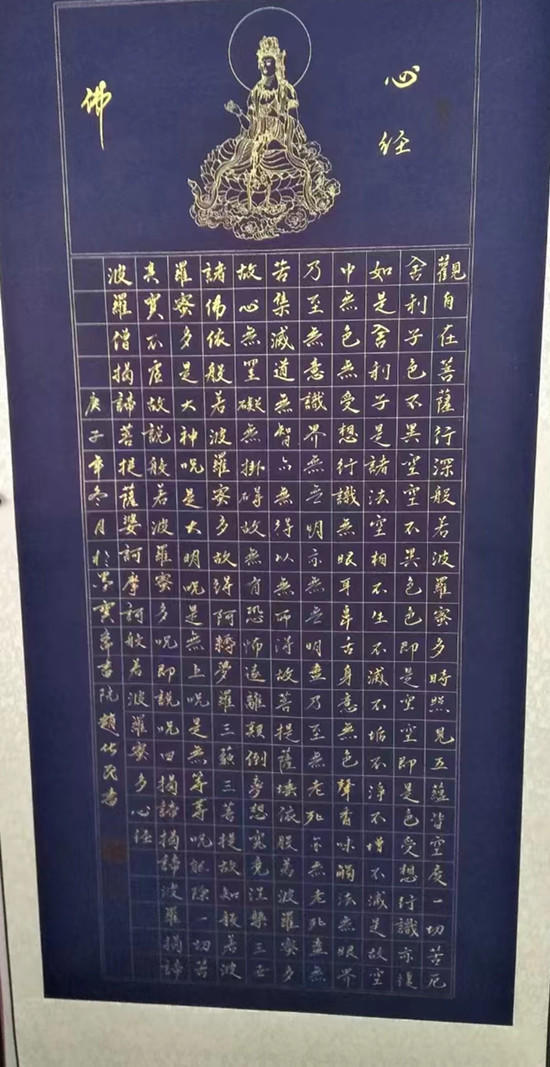 心经
佛
觀自在菩薩行深般若波羅蜜多時照見五蘊皆空度一切苦厄
舍利子色不異空空不異色色即是空空即是色受想行識亦復
如是舍利子是諸法空相不生不滅不垢不淨不增不減是故空
中無色無受想行識無眼耳鼻舌身意無色聲香味觸法無眼界
乃至無意識界無無明亦無無明盡乃至無老死亦無老死盡無
苦集滅道無智亦無得以無所得故菩提薩埵依般若波羅蜜多
故心無罣礙無掛碍故無有恐怖遠離顛倒夢想究竟涅槃三世
諸佛依般若波羅蜜多故得阿耨多羅三藐三菩提故知般若波
羅蜜多是大神呪是大明呪是無上呪是無等等呪能除一切苦
真實不虛故說般若波羅蜜多呪即說呪曰揭諦揭諦波羅揭諦
波羅僧揭諦菩提薩婆訶摩訶般若波羅蜜多心經
庚子年冬月於書院趙民書